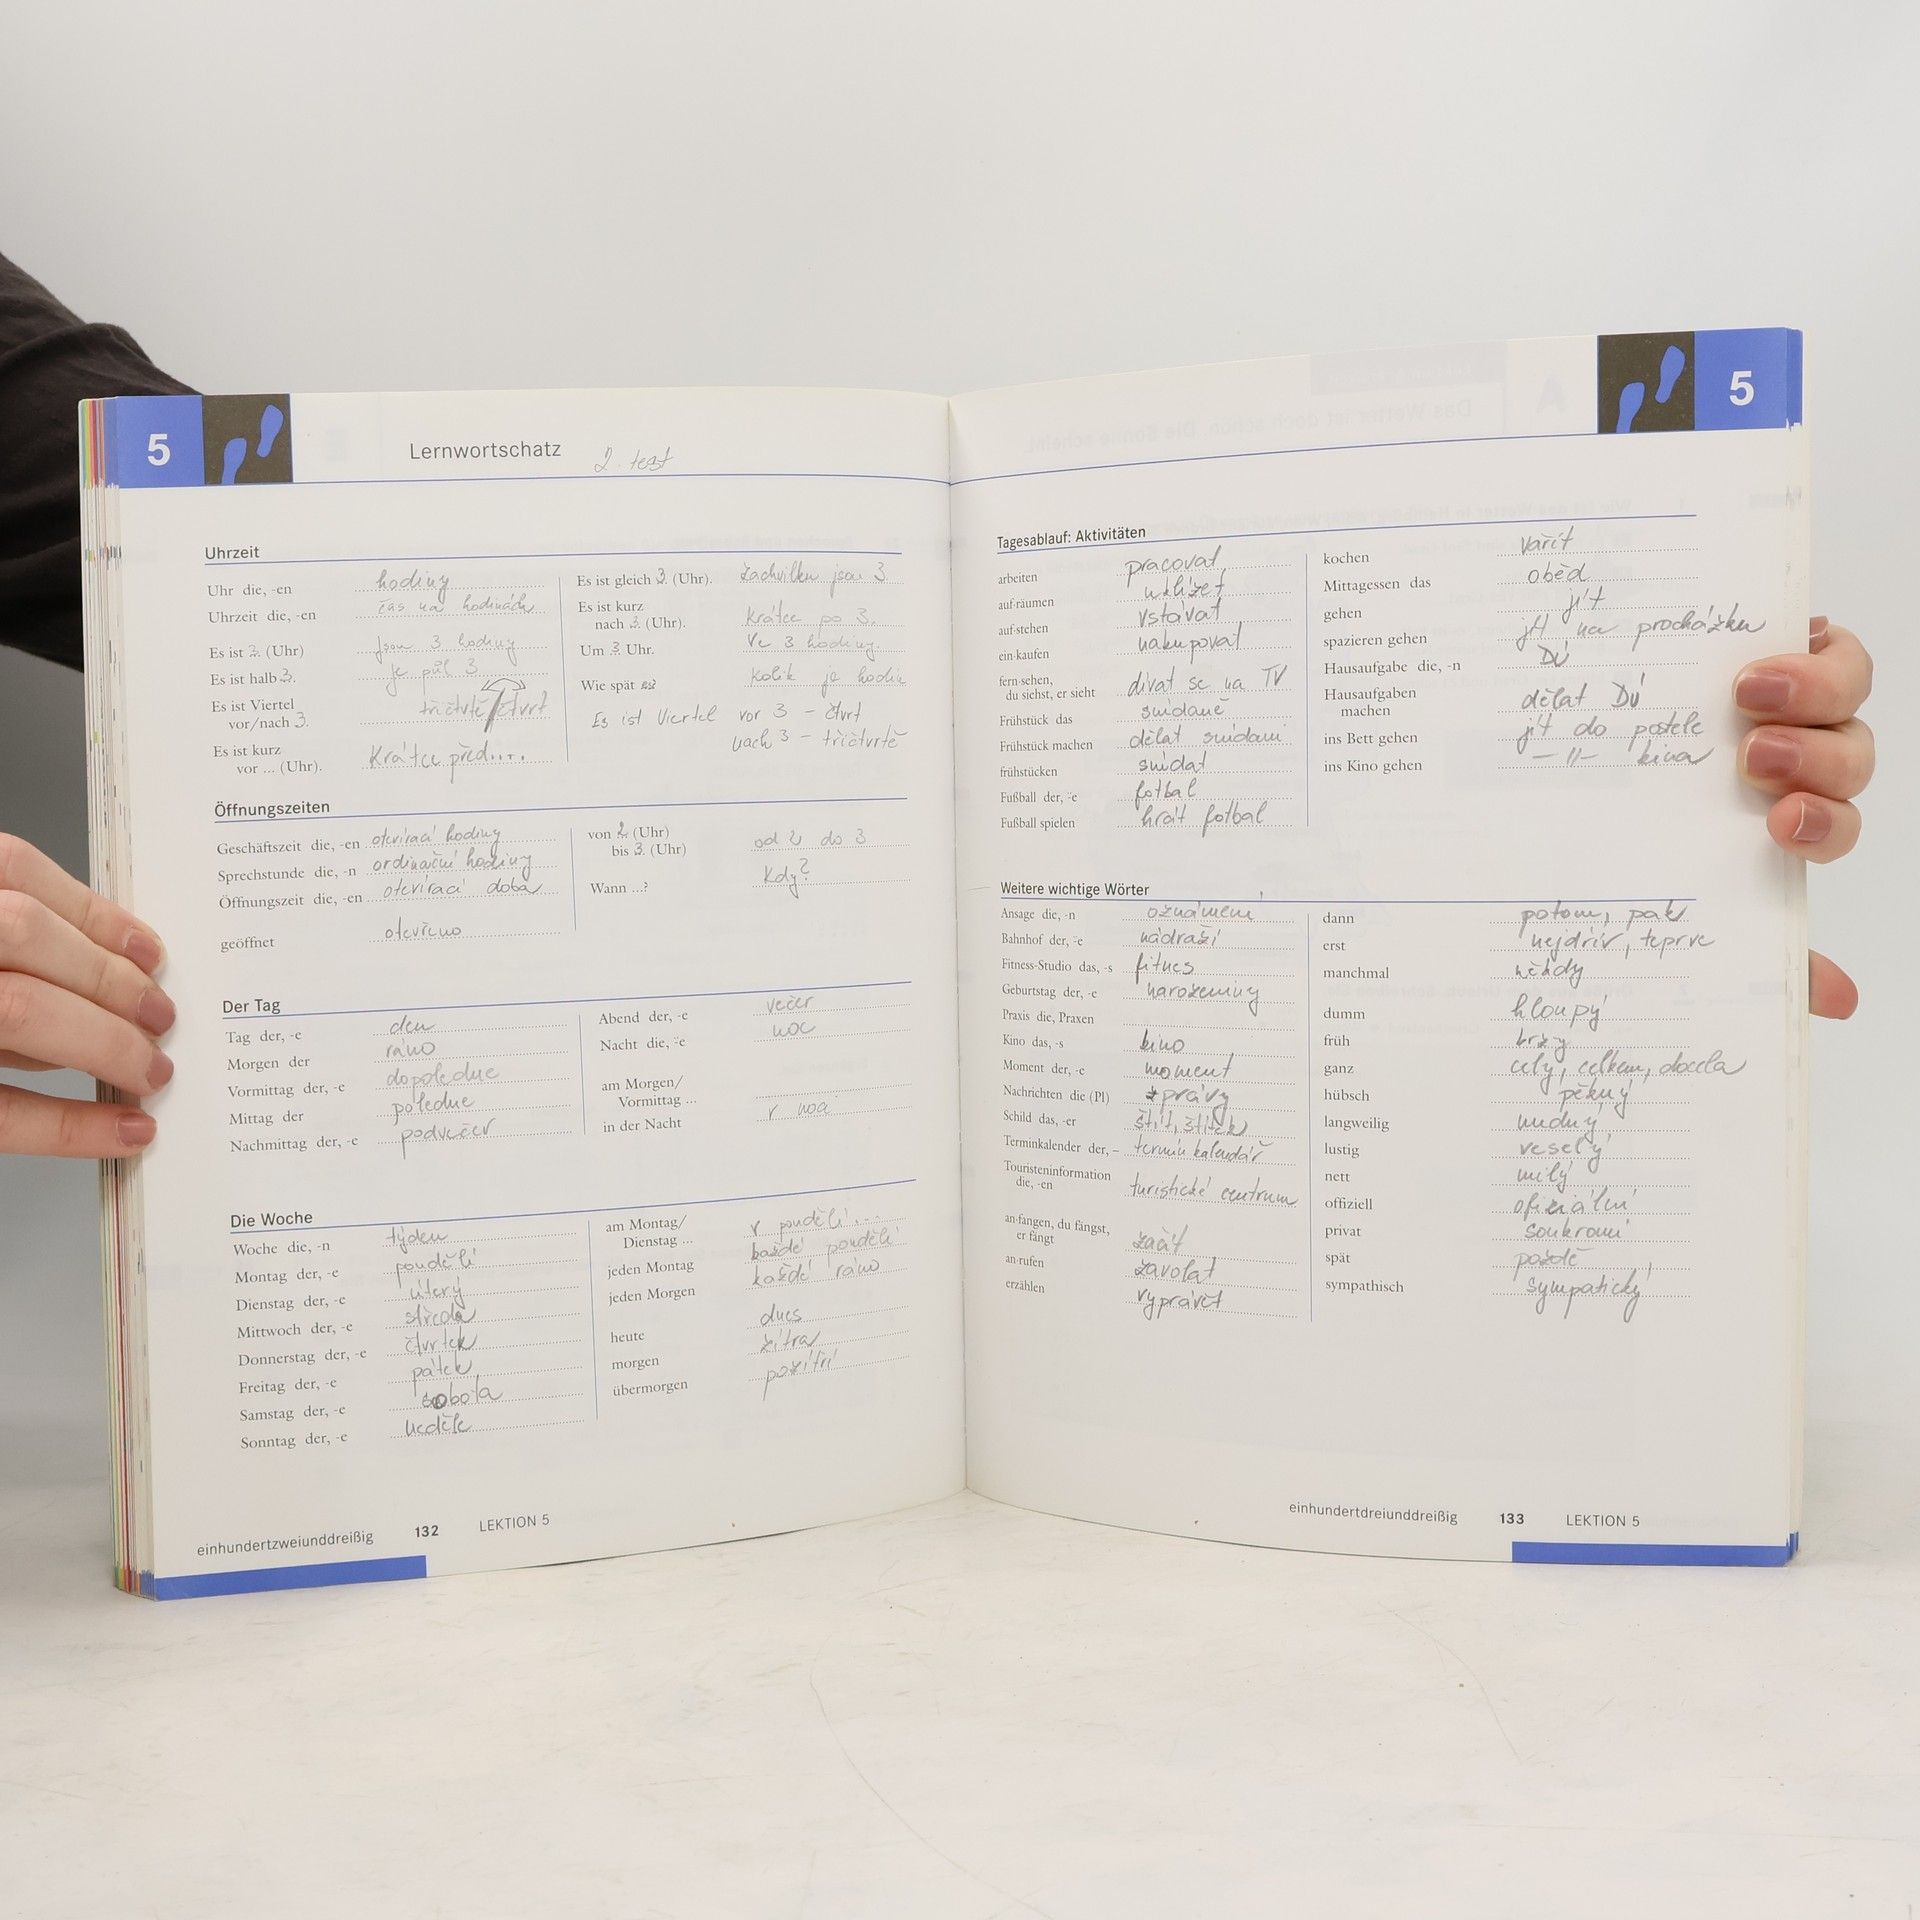 5
Lernwortschatz 2. test
Uhrzeit
Uhr die, -en hodiny
Uhrzeit die, -en čas na hodinách
Es ist 3. (Uhr) jsou 3 hodiny
Es ist halb 3. je půl 3
Es ist Viertel
vor/nach 3. tričtvrtě / čtvrt
Es ist kurz
vor ... (Uhr). Krátce před....
Es ist gleich 3. (Uhr). Zachvilku jsou 3
Es ist kurz
nach 3. (Uhr). krátce po 3.
Um 3 Uhr. Ve 3 hodiny.
Wie spät kolik je hodin
Es ist Viertel vor 3 - čtvrt
nach 3 - tričtvrtě
Öffnungszeiten
Geschäftszeit die, -en otevírací hodiny
Sprechstunde die, -n ordinační hodiny
Öffnungszeit die, -en otevírací doba
geöffnet otevřeno
von 2 (Uhr)
bis 3. (Uhr) od 2 do 3
Wann ...? Kdy?
Der Tag
Tag der, -e den
Morgen der ráno
Vormittag der, -e dopoledne
Mittag der poledne
Nachmittag der, -e podvečer
Abend der, -e večer
Nacht die, ¨e noc
am Morgen/
Vormittag ...
in der Nacht v noci
Die Woche
Woche die, -n týden
Montag der, -e pondělí
Dienstag der, -e úterý
Mittwoch der, -e středa
Donnerstag der, -e čtvrtek
Freitag der, -e pátek
Samstag der, -e sobota
Sonntag der, -e neděle
am Montag/
Dienstag ... v pondělí ...
jeden Montag každé pondělí
jeden Morgen každé ráno
heute dnes
morgen zítra
übermorgen pozítří
einhundertzweiunddreißig 132 LEKTION 5
5
Tagesablauf: Aktivitäten
arbeiten pracovat
auf·räumen uklízet
auf·stehen vstávat
ein·kaufen nakupovat
fern·sehen,
du siehst, er sieht dívat se na TV
Frühstück das snídaně
Frühstück machen dělat snídani
frühstücken snídat
Fußball der, ¨e fotbal
Fußball spielen hrát fotbal
kochen vařit
Mittagessen das oběd
gehen jít
spazieren gehen jít na procházku
Hausaufgabe die, -n DÚ
Hausaufgaben
machen dělat DÚ
ins Bett gehen jít do postele
ins Kino gehen -//- kina
Weitere wichtige Wörter
Ansage die, -n oznámení
Bahnhof der, ¨e nádraží
Fitness-Studio das, -s fitnes
Geburtstag der, -e narozeniny
Praxis die, Praxen
Kino das, -s kino
Moment der, -e moment
Nachrichten die (Pl) zprávy
Schild das, -er štít, štítek
Terminkalender der, – termín kalendář
Touristeninformation
die, -en turistické centrum
an·fangen, du fängst,
er fängt začít
an·rufen zavolat
erzählen vyprávět
dann potom, pak
erst nejdřív, teprve
manchmal někdy
dumm hloupý
früh brzy
ganz celý, celkem, docela
hübsch pěkný
langweilig nudný
lustig veselý
nett milý
offiziell oficiální
privat soukromí
spät pozdě
sympathisch sympatický
einhundertdreiunddreißig 133 LEKTION 5